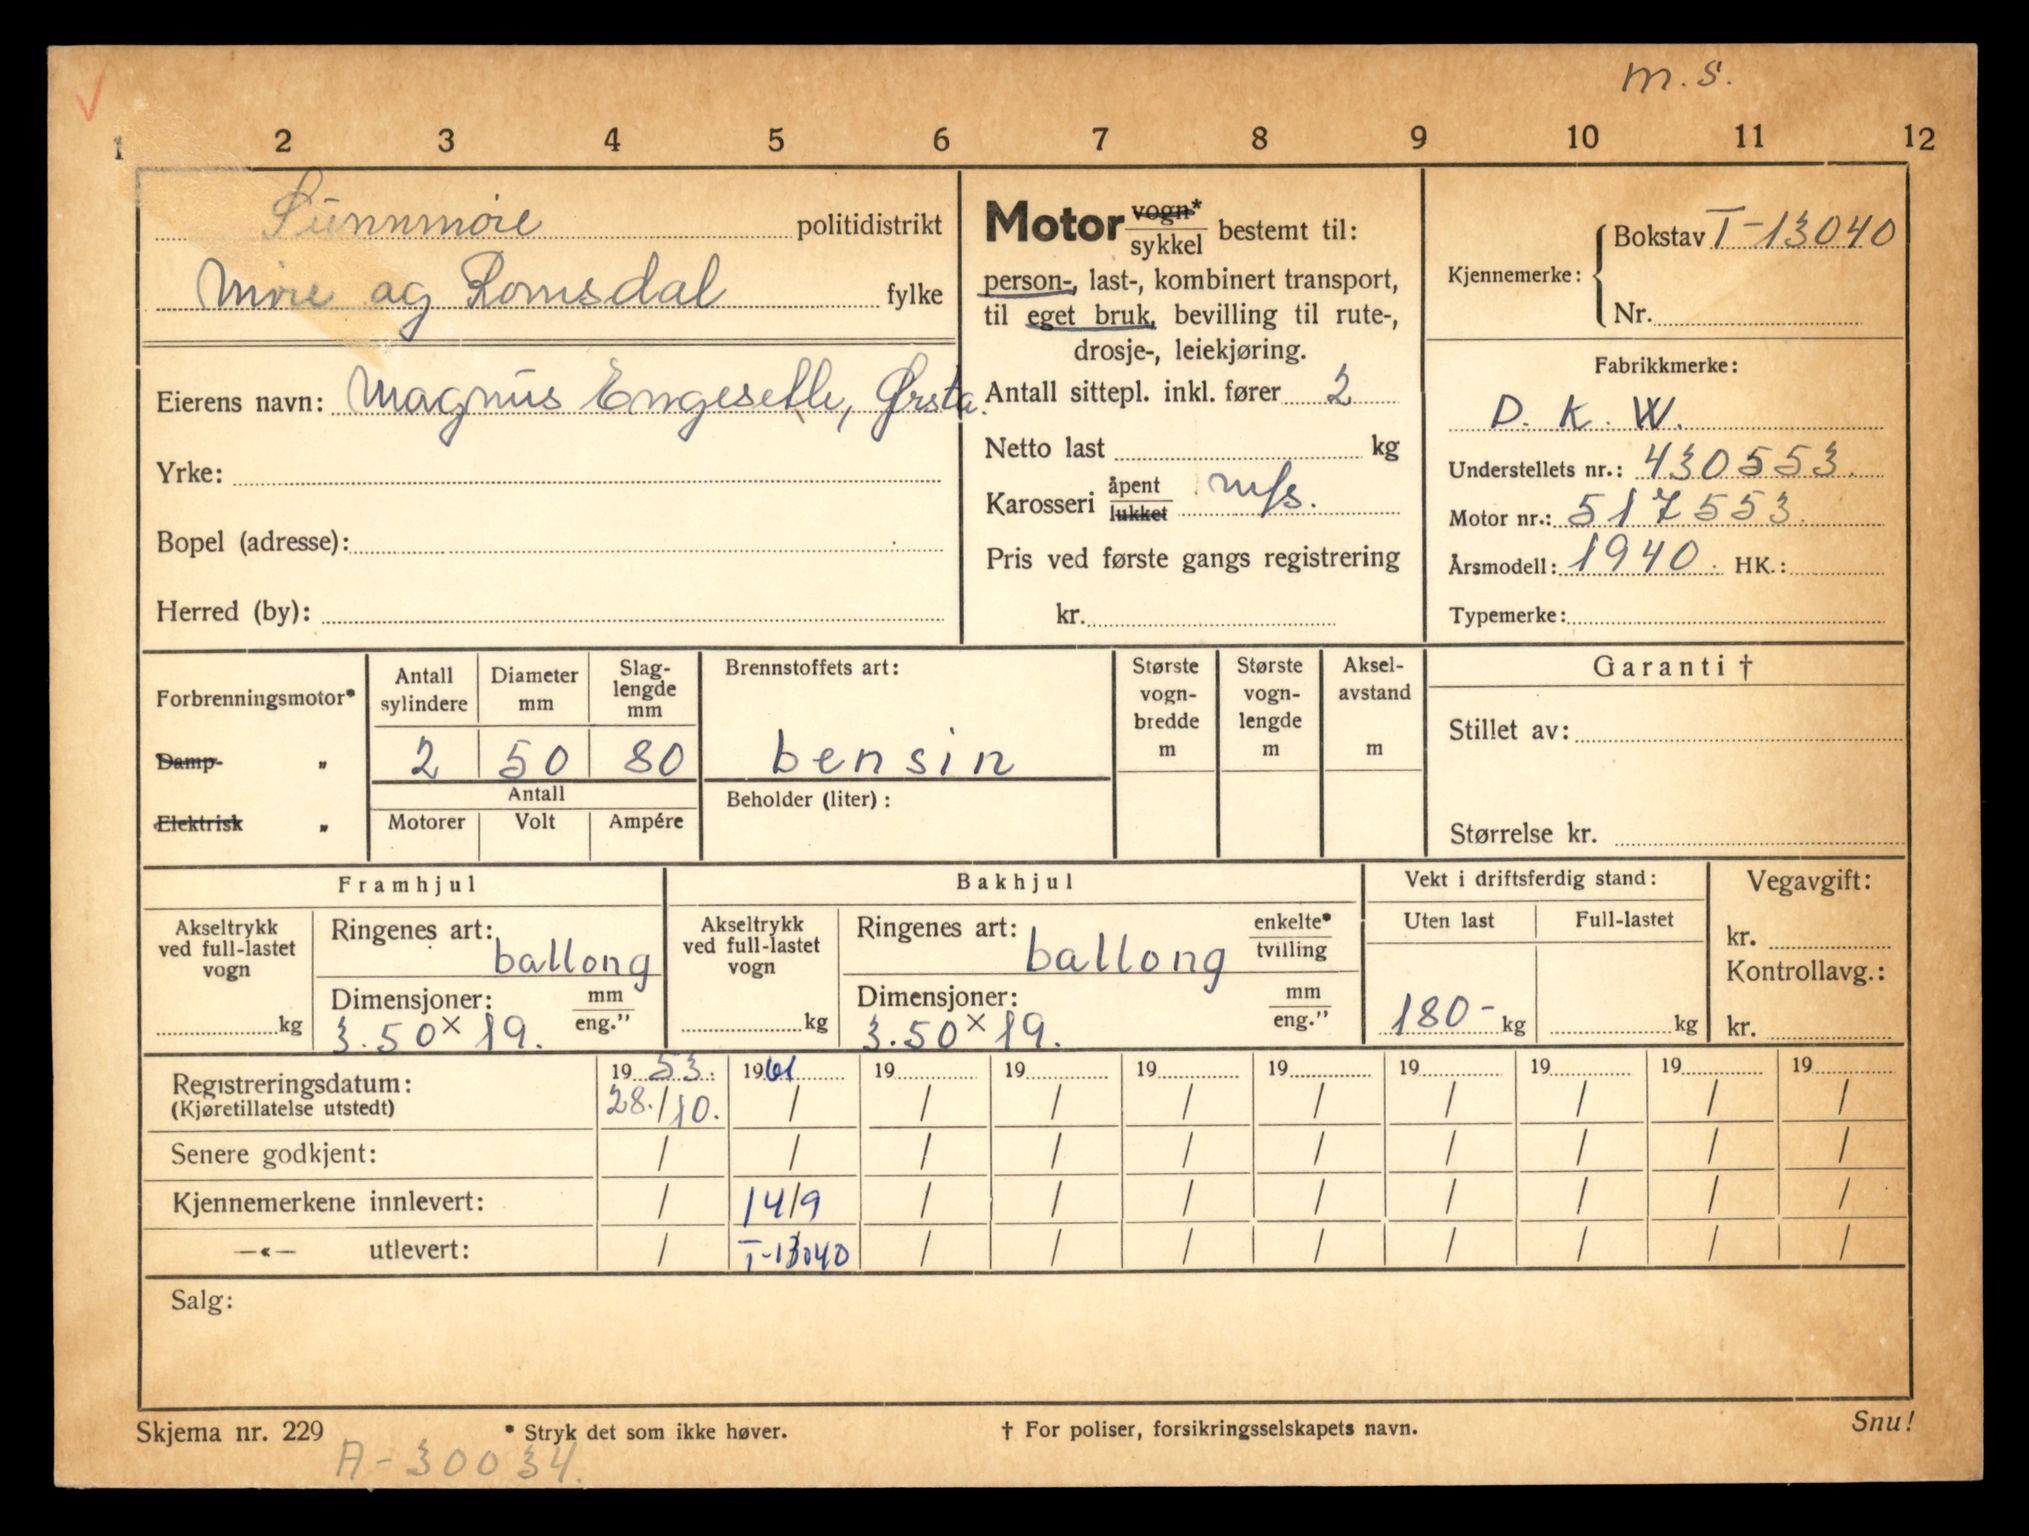 m.s.
1 2 3 4 5 6 7 8 9 10 11 12
Sunnmøre politidistrikt
Møre og Romsdal fylke
Eierens navn: Magnus Engeseth, Ørsta.
Yrke:
Bopel (adresse):
Herred (by):
Motor vogn* sykkel bestemt til:
person-, last-, kombinert transport,
til eget bruk, bevilling til rute-,
drosje-, leiekjøring.
Antall sittepl. inkl. fører 2
Netto last kg
Karosseri åpent lukket m/s.
Pris ved første gangs registrering
kr.
Kjennemerke: Bokstav T-13040
Nr.
Fabrikkmerke:
D. K. W.
Understellets nr.: 430553.
Motor nr.: 517553.
Årsmodell: 1940. HK.:
Typemerke:
Forbrenningsmotor*
Damp- „
Elektrisk „
Antall sylindere
Diameter mm
Slag-lengde mm
2 50 80
Antall
Motorer Volt Ampére
Brennstoffets art:
bensin
Beholder (liter):
Største vogn-bredde m
Største vogn-lengde m
Aksel-avstand m
Garanti †
Stillet av:
Størrelse kr.
Framhjul
Akseltrykk ved full-lastet vogn
kg
Ringenes art: ballong
Dimensjoner: mm eng."
3.50 x 19.
Bakhjul
Akseltrykk ved full-lastet vogn
kg
Ringenes art: ballong enkelte* tvilling
Dimensjoner: mm eng."
3.50 x 19.
Vekt i driftsferdig stand:
Uten last Full-lastet
180- kg kg
Vegavgift:
kr.
Kontrollavg.:
kr.
Registreringsdatum: 19 53. 1961 19 19 19 19 19 19 19 19
(Kjøretillatelse utstedt) 28./10. / / / / / / / / /
Senere godkjent: / / / / / / / / / /
Kjennemerkene innlevert: / 14/9 / / / / / / / /
—«— utlevert: / T-13040 / / / / / / / /
Salg:
Skjema nr. 229 * Stryk det som ikke høver. † For poliser, forsikringsselskapets navn. Snu!
A-30034.